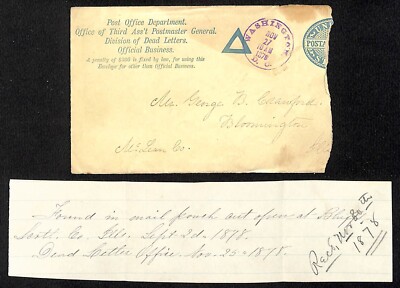 Post Office Department.
Office of Third Ass't Postmaster General.
Division of Dead Letters.
Official Business.
A penalty of $300 is fixed by law, for using this
Envelope for other than Official Business.
WASHINGTON
NOV
27
10 AM
1878
D. C.
POSTA
Mr. George B. Crawford,
Bloomington
McLean Co.
Found in mail pouch out open at
Scott. Co. Ills. Sept. 2d 1878.
Dead Letter Office Nov. 25th 1878.
1878